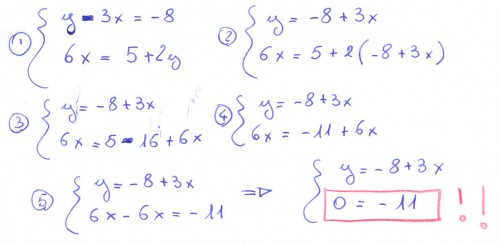 ① y - 3x = -8
6x = 5 + 2y
② y = -8 + 3x
6x = 5 + 2(-8 + 3x)
③ y = -8 + 3x
6x = 5 - 16 + 6x
④ y = -8 + 3x
6x = -11 + 6x
⑤ y = -8 + 3x
6x - 6x = -11
⇒ y = -8 + 3x
0 = -11 !!